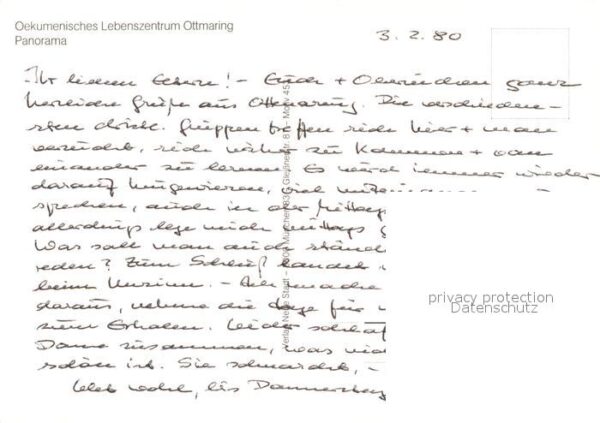 Oekumenisches Lebenszentrum Ottmaring
Panorama
3.2.80
Ihr lieben Eltern! – Euch + Oberüchen ganz
herzliche Grüße aus Ottmaring. Die verschieden-
sten christl. Gruppen treffen sich hier + man
versucht, sich näher zu kommen + von
einander zu lernen. Es wird immer wieder
darauf hingewiesen, viel
sprechen, auch in der Mittags
allerdings lege mich mittags
Was soll man auch ständ
reden? Zum Schluß landet
beim Unsinn. – Ich mache
daraus, nehme die Tage für
zum Erholen. Leider schlaf
Dame zusammen, was nic
schön ist. Sie schnarcht, –
Lebt wohl, bis Donnerstag
Verlag Neue Stadt – 8000 München 83
privacy protection
Datenschutz